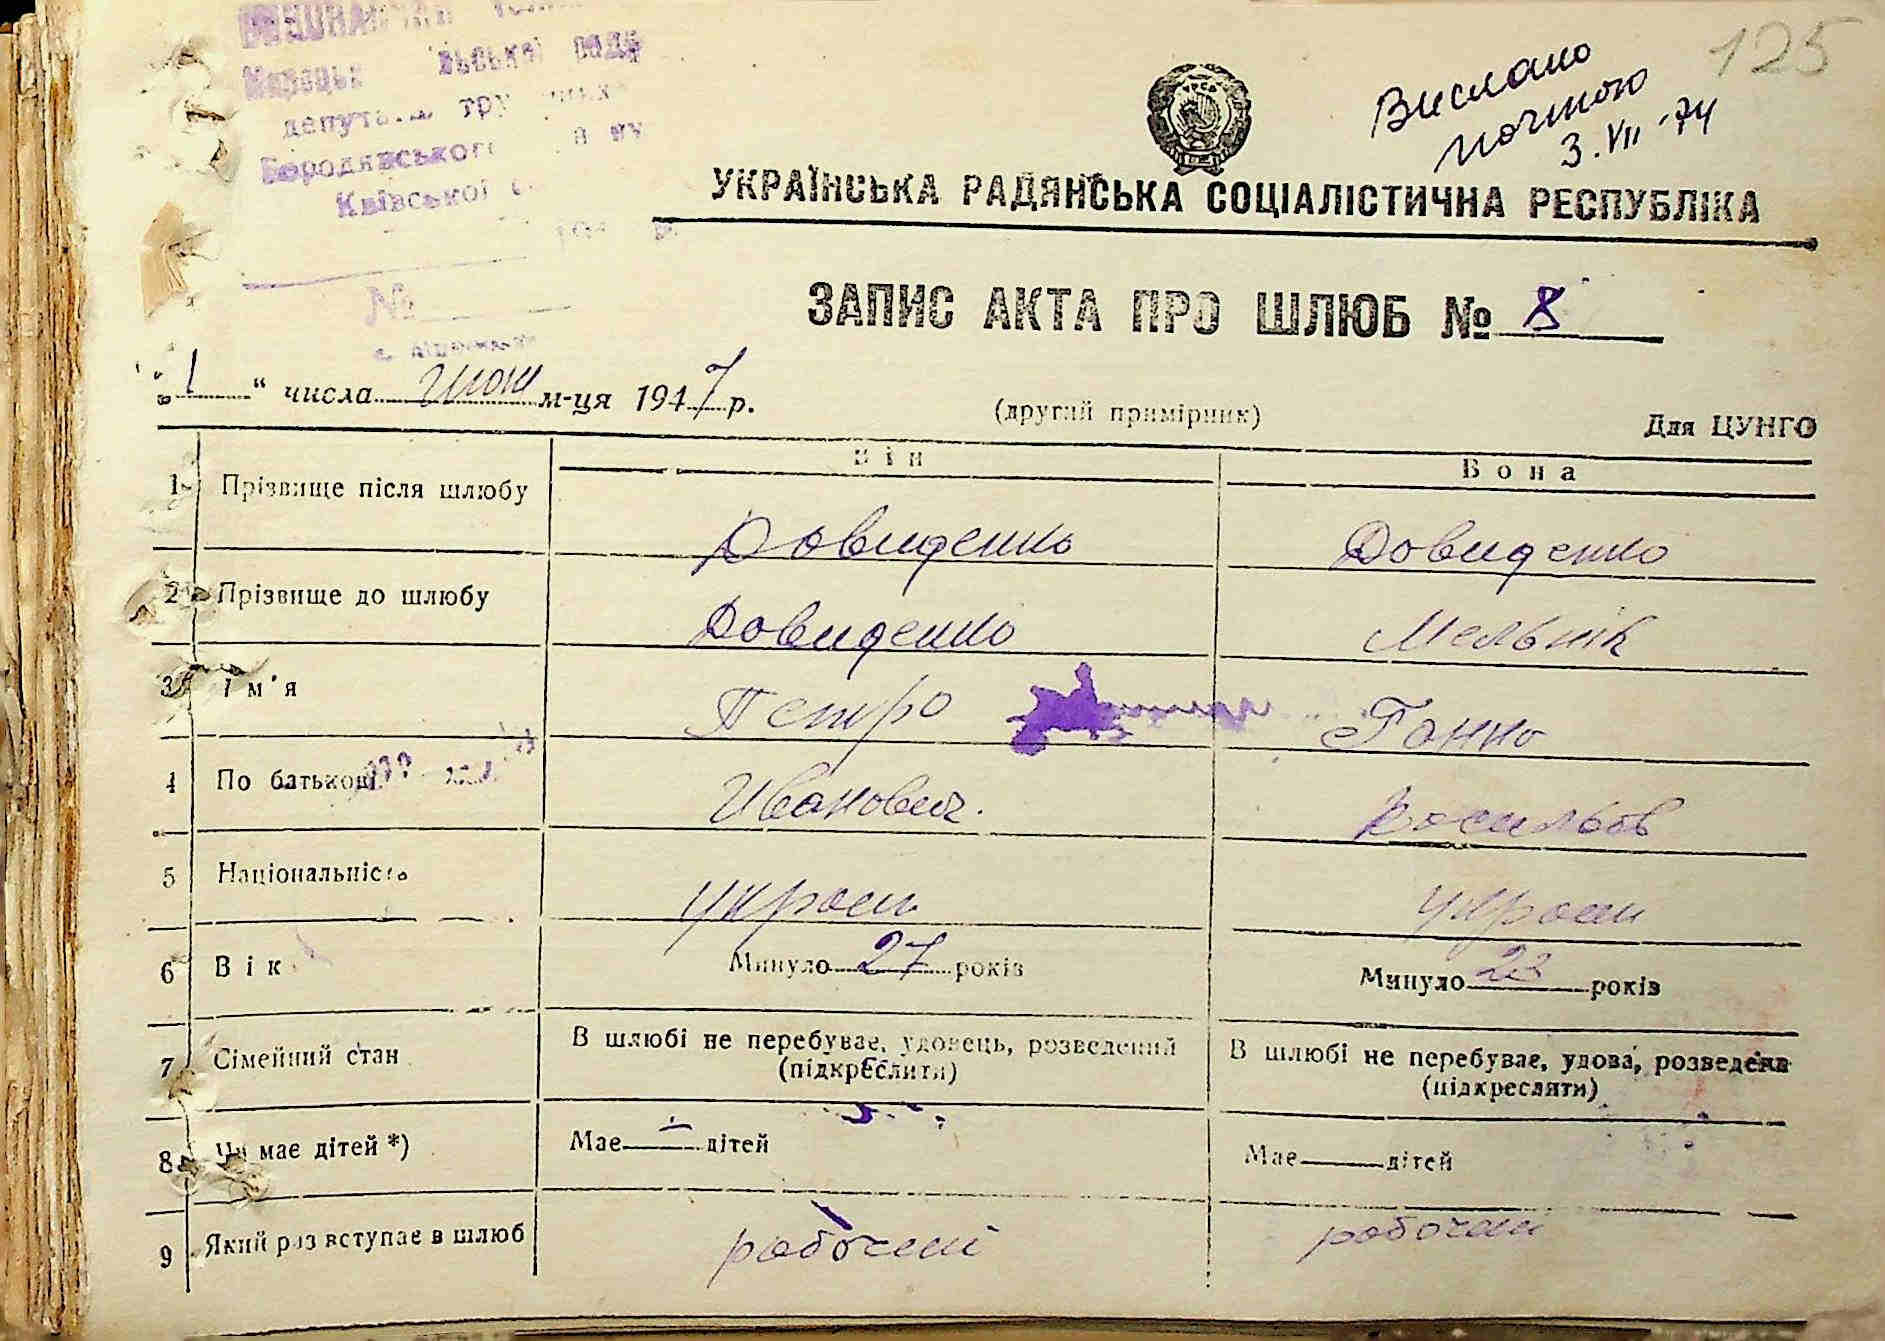 125
Вислано
почтою
3.VII '74
депута
Бородянського
Київської
УКРАЇНСЬКА РАДЯНСЬКА СОЦІАЛІСТИЧНА РЕСПУБЛІКА
№
ЗАПИС АКТА ПРО ШЛЮБ № 8
„ 1 “ числа м-ця 1947 р.
(другий примірник)
Для ЦУНГО
Він Вона
1 Прізвище після шлюбу Довиденко Довиденко
2 Прізвище до шлюбу Довиденко Мельнік
3 Ім'я Петро Ганна
4 По батькові Иванович. Васильов
5 Національність украин украин
6 Вік Минуло 27 років Минуло 23 років
7 Сімейний стан В шлюбі не перебуває, удовець, розведений В шлюбі не перебуває, удова, розведена
(підкреслити) (підкресляти)
8 Чи має дітей *) Має — дітей Має дітей
9 Який раз вступає в шлюб рабочий рабочий